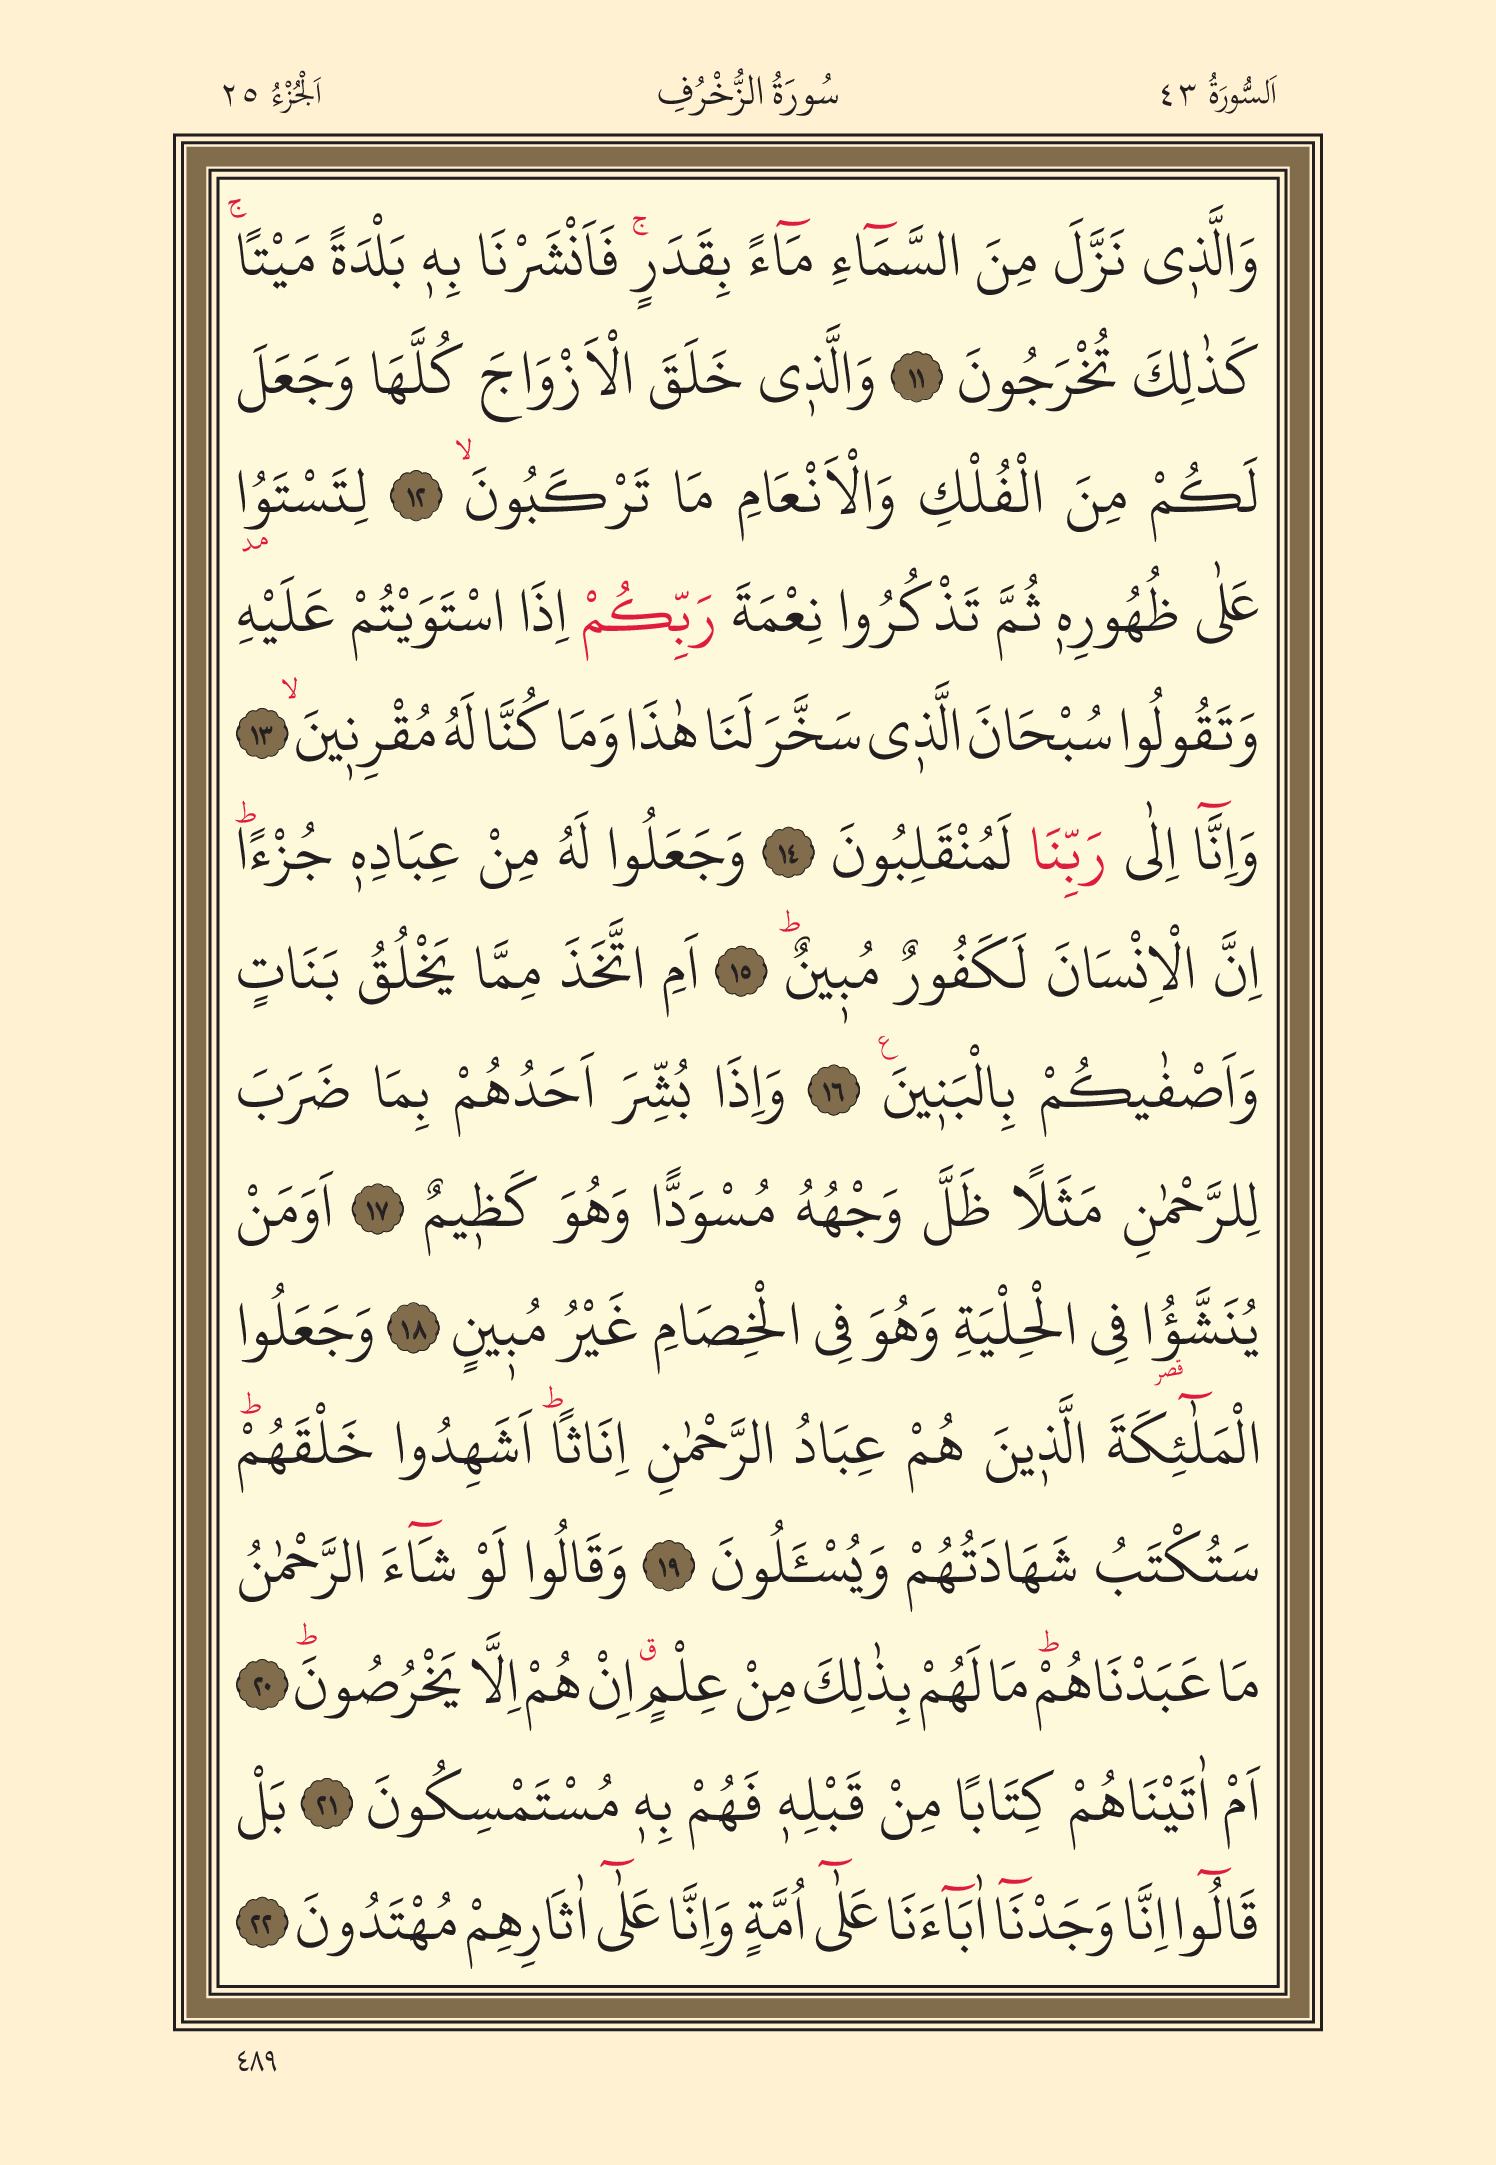 اَلسُّورَةُ ٤٣ سُورَةُ الزُّخْرُفِ اَلْجُزْءُ ٢٥
وَالَّذٖى نَزَّلَ مِنَ السَّمَٓاءِ مَٓاءً بِقَدَرٍۚ فَاَنْشَرْنَا بِهٖ بَلْدَةً مَيْتًاۚ
كَذٰلِكَ تُخْرَجُونَ ﴿١١﴾ وَالَّذٖى خَلَقَ الْاَزْوَاجَ كُلَّهَا وَجَعَلَ
لَكُمْ مِنَ الْفُلْكِ وَالْاَنْعَامِ مَا تَرْكَبُونَۙ ﴿١٢﴾ لِتَسْتَوُا
مد
عَلٰى ظُهُورِهٖ ثُمَّ تَذْكُرُوا نِعْمَةَ رَبِّكُمْ اِذَا اسْتَوَيْتُمْ عَلَيْهِ
وَتَقُولُوا سُبْحَانَ الَّذٖى سَخَّرَ لَنَا هٰذَا وَمَا كُنَّا لَهُ مُقْرِنٖينَۙ ﴿١٣﴾
وَاِنَّٓا اِلٰى رَبِّنَا لَمُنْقَلِبُونَ ﴿١٤﴾ وَجَعَلُوا لَهُ مِنْ عِبَادِهٖ جُزْءًاؕ
اِنَّ الْاِنْسَانَ لَكَفُورٌ مُبٖينٌؕ ﴿١٥﴾ اَمِ اتَّخَذَ مِمَّا يَخْلُقُ بَنَاتٍ
وَاَصْفٰيكُمْ بِالْبَنٖينَ ع ﴿١٦﴾ وَاِذَا بُشِّرَ اَحَدُهُمْ بِمَا ضَرَبَ
لِلرَّحْمٰنِ مَثَلًا ظَلَّ وَجْهُهُ مُسْوَدًّا وَهُوَ كَظٖيمٌ ﴿١٧﴾ اَوَمَنْ
يُنَشَّؤُا فِى الْحِلْيَةِ وَهُوَ فِى الْخِصَامِ غَيْرُ مُبٖينٍ ﴿١٨﴾ وَجَعَلُوا
قصر
الْمَلٰٓئِكَةَ الَّذٖينَ هُمْ عِبَادُ الرَّحْمٰنِ اِنَاثًاؕ اَشَهِدُوا خَلْقَهُمْؕ
سَتُكْتَبُ شَهَادَتُهُمْ وَيُسْـَٔلُونَ ﴿١٩﴾ وَقَالُوا لَوْ شَٓاءَ الرَّحْمٰنُ
مَا عَبَدْنَاهُمْؕ مَا لَهُمْ بِذٰلِكَ مِنْ عِلْمٍࣗ اِنْ هُمْ اِلَّا يَخْرُصُونَؕ ﴿٢٠﴾
اَمْ اٰتَيْنَاهُمْ كِتَابًا مِنْ قَبْلِهٖ فَهُمْ بِهٖ مُسْتَمْسِكُونَ ﴿٢١﴾ بَلْ
قَالُٓوا اِنَّا وَجَدْنَٓا اٰبَٓاءَنَا عَلٰٓى اُمَّةٍ وَاِنَّا عَلٰٓى اٰثَارِهِمْ مُهْتَدُونَ ﴿٢٢﴾
٤٨٩